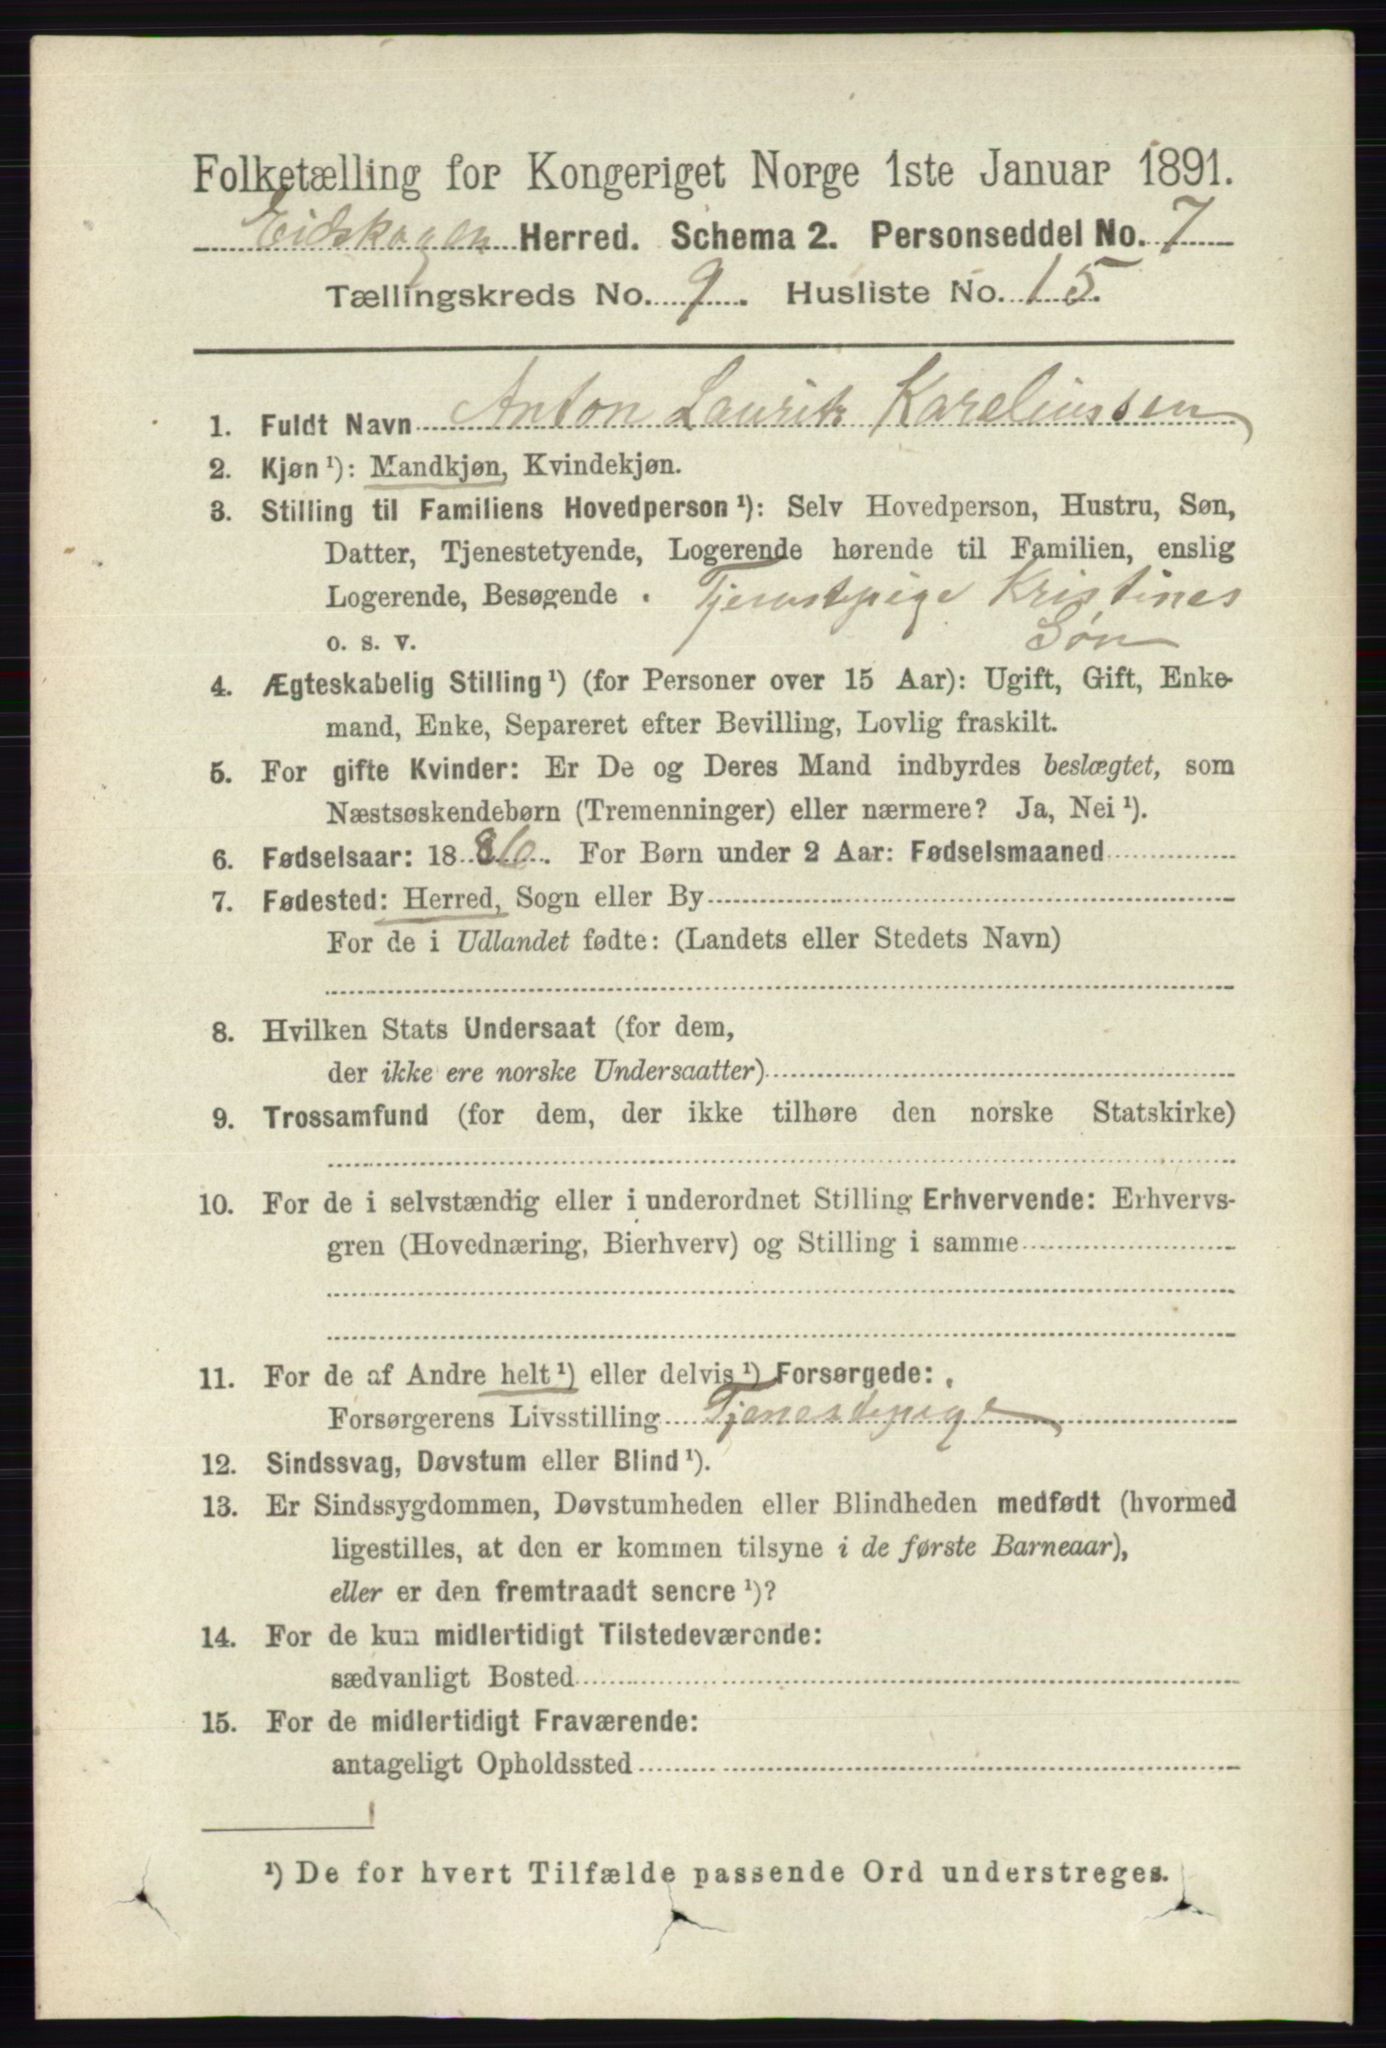 Folketælling for Kongeriget Norge 1ste Januar 1891.
Eidskogen Herred. Schema 2. Personseddel No. 7
Tællingskreds No. 9. Husliste No. 15.
1. Fuldt Navn Anton Laurits Kareliussen
2. Kjøn ¹): Mandkjøn, Kvindekjøn.
3. Stilling til Familiens Hovedperson ¹): Selv Hovedperson, Hustru, Søn,
Datter, Tjenestetyende, Logerende hørende til Familien, enslig
Logerende, Besøgende . Tjenestepige Kristines
o. s. v. Søn
4. Ægteskabelig Stilling ¹) (for Personer over 15 Aar): Ugift, Gift, Enke-
mand, Enke, Separeret efter Bevilling, Lovlig fraskilt.
5. For gifte Kvinder: Er De og Deres Mand indbyrdes beslægtet, som
Næstsøskendebørn (Tremenninger) eller nærmere? Ja, Nei ¹).
6. Fødselsaar: 1886. For Børn under 2 Aar: Fødselsmaaned
7. Fødested: Herred, Sogn eller By
For de i Udlandet fødte: (Landets eller Stedets Navn)
8. Hvilken Stats Undersaat (for dem,
der ikke ere norske Undersaatter)
9. Trossamfund (for dem, der ikke tilhøre den norske Statskirke)
10. For de i selvstændig eller i underordnet Stilling Erhvervende: Erhvervs-
gren (Hovednæring, Bierhverv) og Stilling i samme
11. For de af Andre helt ¹) eller delvis ¹) Forsørgede:
Forsørgerens Livsstilling Tjenestepige
12. Sindssvag, Døvstum eller Blind ¹).
13. Er Sindssygdommen, Døvstumheden eller Blindheden medfødt (hvormed
ligestilles, at den er kommen tilsyne i de første Barneaar),
eller er den fremtraadt senere ¹)?
14. For de kun midlertidigt Tilstedeværende:
sædvanligt Bosted
15. For de midlertidigt Fraværende:
antageligt Opholdssted
¹) De for hvert Tilfælde passende Ord understreges.